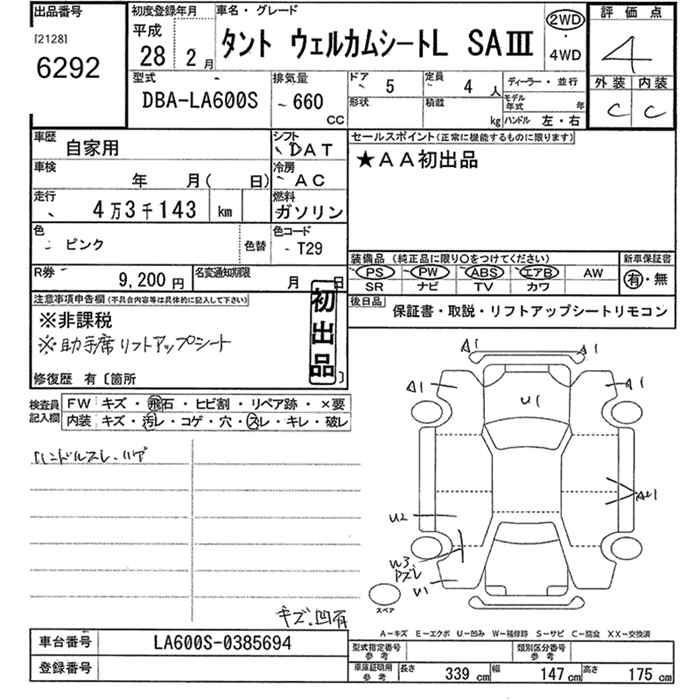 出品番号
[2128]
6292
初度登録年月
平成
28 2月
車名・グレード
タント ウェルカムシートL SAⅢ
2WD
・
4WD
評価点
4
外装 内装
C C
型式
DBA-LA600S
排気量
~ 660 CC
ドア 5
定員 4 人
ディーラー・並行
形状
積載 kg
モデル年式 年
ハンドル 左・右
車歴
自家用
シフト
DAT
セールスポイント(正常に機能するものに限ります)
★AA初出品
車検
年 月( 日)
冷房
AC
走行
4万3千143 km
燃料
ガソリン
色
ピンク
色替
色コード
T29
装備品(純正品に限り○をつけてください)
新車保証書
PS PW ABS エアB AW
有・無
SR ナビ TV カワ
R券
9,200円
名変通知期限
月 日
後日品
保証書・取説・リフトアップシートリモコン
注意事項申告欄(不具合内容等は具体的に記入して下さい)
※非課税
※助手席リフトアップシート
初出品
修復歴 有〔箇所 〕
検査員記入欄
FW キズ・飛石・ヒビ割・リペア跡・×要
内装 キズ・汚レ・コゲ・穴・スレ・キレ・破レ
ハンドルスレ、ハゲ
キズ、凹有
A1 A1
A1 U1 A1
A21
U2
W3
Pズレ
U1
スペア
A-キズ E-エクボ U-凹み W-補修跡 S-サビ C-腐食 XX-交換済
車台番号
LA600S-0385694
登録番号
型式指定番号
参考
類別区分番号
参考
車庫証明用
参考
長さ 339 cm 幅 147 cm 高さ 175 cm